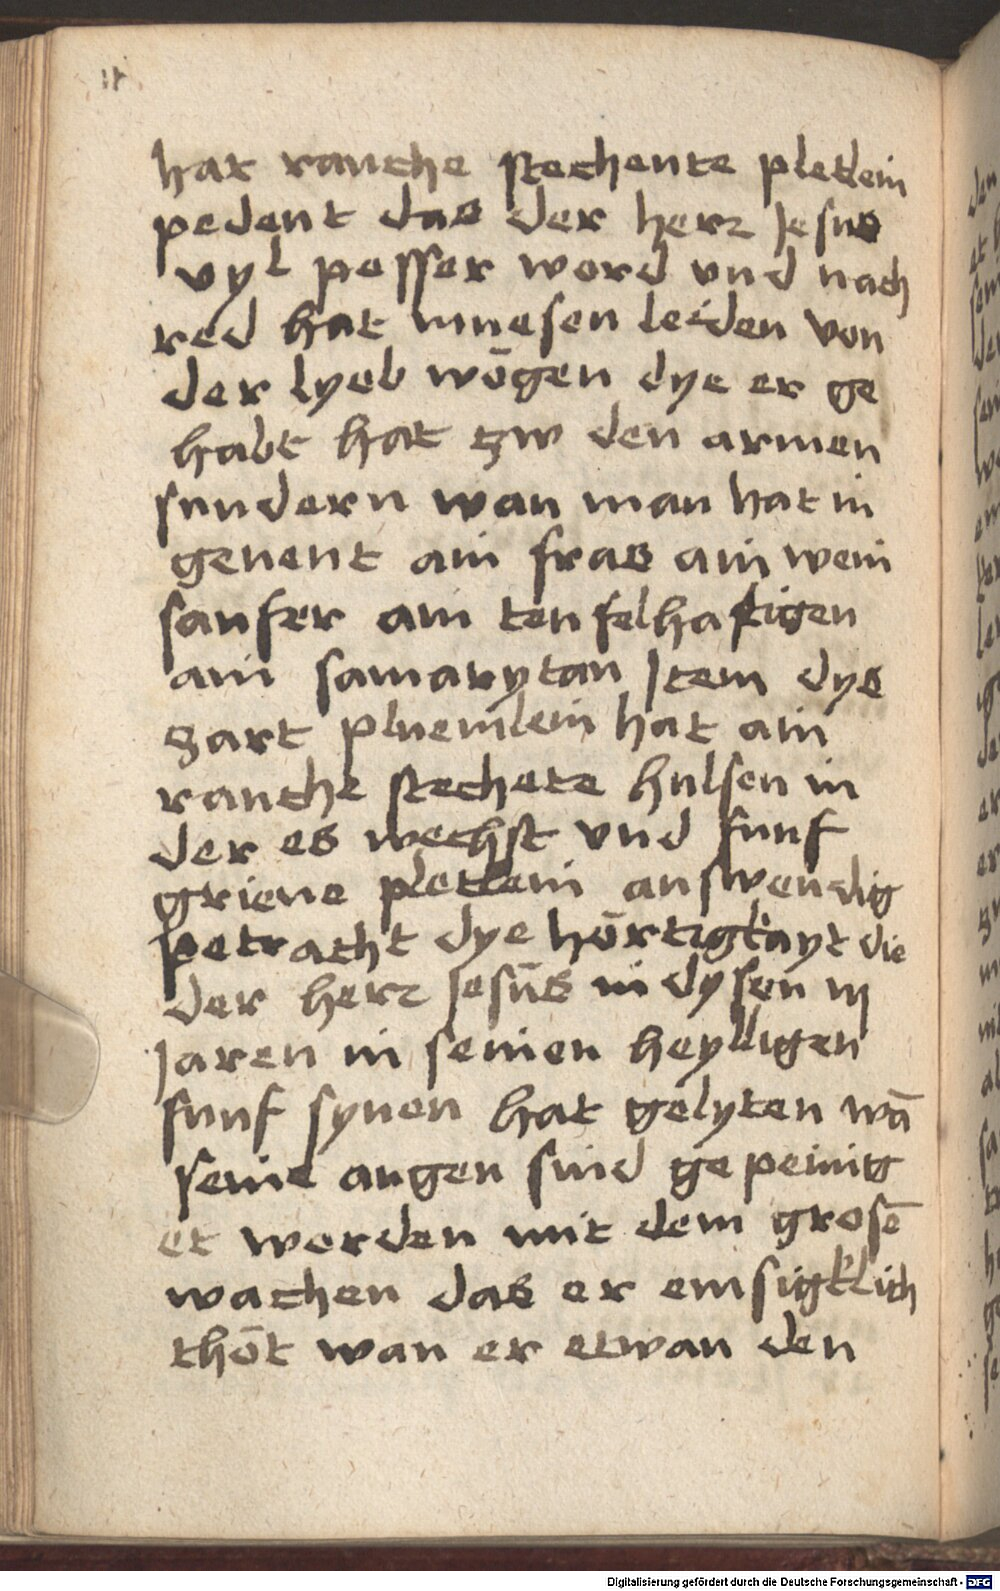 hat rauche stechente pletlein
pedent das der herr Jesus
vyl pesser word vnd nach
red hat muesen leiden von
der lyeb wōgen dye er ge
habt hat zw den armen
sundern wan man hat in
genent ain fras ain wein
saufer ain teufelhaftigen
ain samarytan Item dys
zart pluemlein hat ain
rauche stechete hulsen in
der es wechst vnd funf
griene pletlein auswendig
petracht dye hōrtigkayt die
der herr Jesūs in dysen iij
Jaren in seinen heylligen
funf synen hat gelyten wā
seine augen sind gepeinig
et worden mit dem grosē
wachen das er emsigklich
thōt wan er etwan den
Digitalisierung gefördert durch die Deutsche Forschungsgemeinschaft - DFG